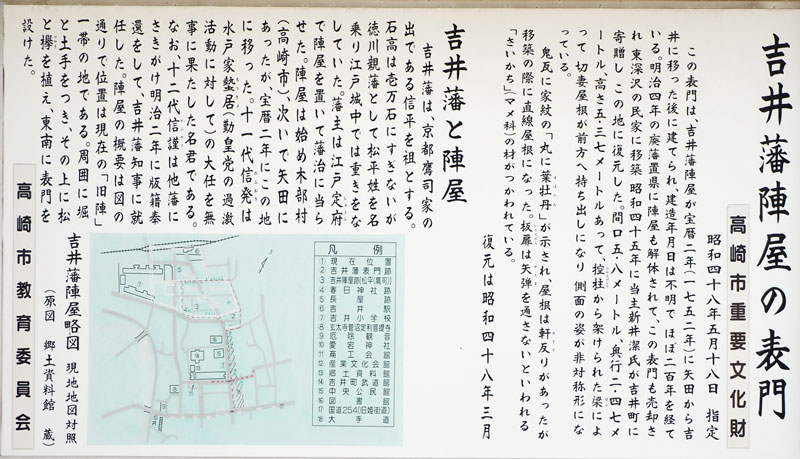 吉井藩陣屋の表門
高崎市重要文化財
昭和四十八年五月十八日 指定
この表門は、吉井藩陣屋が宝暦二年(一七五二年)に矢田から吉
井に移った後に建てられ、建造年月日は不明で ほぼ二百年を経て
いる。明治四年の廃藩置県に陣屋も解体されて、この表門も売却さ
れ 東深沢の民家に移築 昭和四十五年に当主新井潔氏が吉井町に
寄贈し この地に復元した。間口五・八メートル、奥行二・四七メ
ートル、高さ五・三七メートルあって、控柱から架けられた梁によ
って 切妻屋根が前方へ 持ち出しになり 側面の姿が非対称形にな
っている。
鬼瓦に家紋の「丸に葉牡丹」が示され、屋根は軒反りがあったが
移築の際に直線屋根になった。板扉は矢弾を通さないといわれる
「さいかち」(マメ科)の材がつかわれている。
復元は昭和四十八年三月
吉井藩と陣屋
吉井藩は、京都鷹司家の
出である信平を祖とする。
石高は壱万石にすぎないが
徳川親藩として松平姓を名
乗り江戸城中では重きをな
していた。藩主は江戸定府
で陣屋を置いて藩治に当ら
せた。陣屋は始め木部村
(高崎市)、次いで矢田に
あったが、宝暦二年にこの地
に移った。十一代信発は
水戸家蟄居(勤皇党の過激
活動に対して)の大任を無
事に果たした名君である。
なお、十二代信謹は他藩に
さきがけ明治二年に版籍奉
還をして、吉井藩知事に就
任した。陣屋の概要は図の
通りで位置は現在の「旧陣」
一帯の地である。周囲に堀
と土手をつき、その上に松
と欅を植え、東南に表門を
設けた。
凡例
①現在位置
2 吉井藩表門跡
3 吉井陣屋跡(松平(鷹司))
4 春日神社跡
5 長屋跡
6 吉井駅
7 吉井小学校
8 玄太寺菅沼定利菩提寺
9 厄除観音
10 愛宕神社
11 商工会館
12 産業文化会館
13 郷土資料館
14 吉井町武道館
15 中央公民館
16 図書館
17 国道254(旧姫街道)
18 大手道
吉井藩陣屋略図 現地地図対照
(原図 郷土資料館 蔵)
高崎市教育委員会